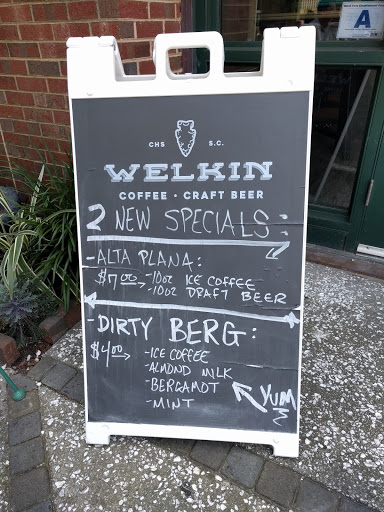 A
CHS S.C.
WELKIN
COFFEE · CRAFT BEER
2 NEW SPECIALS:
- ALTA PLANA:
$7.00 → - 10oz ICE COFFEE
- 10oz DRAFT BEER
- DIRTY BERG:
$4.00 → - ICE COFFEE
- ALMOND MILK
- BERGAMOT
- MINT
YUM